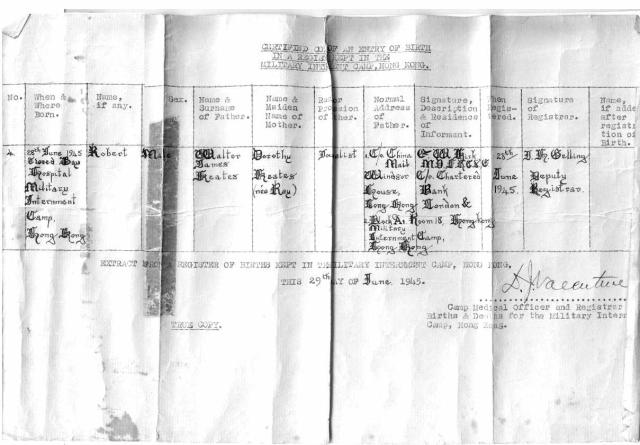 CERTIFIED COPY OF AN ENTRY OF BIRTH
IN A REGISTER KEPT IN THE
MILITARY INTERNMENT CAMP, HONG KONG.
No.
When &
Where
Born.
Name,
if any.
Sex.
Name &
Surname
of Father.
Name &
Maiden
Name of
Mother.
Normal
Address
of
Father.
Signature,
Description
& Residence
of
Informant.
When
Regis-
tered.
Signature
of
Registrar.
Name,
if added
after
registration
of
Birth.
28th June 1945
Tweed Bay
Hospital
Military
Internment
Camp,
Hong Kong
Robert
Male
Walter
James
Keates
Dorothy
Keates
(née Roy)
Journalist
c/o China
Mail
Windsor
House,
Hong Kong
Room 18,
Military
Internment
Camp,
Hong Kong
Kirk
c/o Chartered
Bank
London &
Hong Kong
28th
June
1945.
Deputy
Registrar.
EXTRACT FROM A REGISTER OF BIRTHS KEPT IN THE MILITARY INTERNMENT CAMP, HONG KONG.
THIS 29th DAY OF June 1945.
D. J. Valentine
TRUE COPY.
Camp Medical Officer and Registrar
Births & Deaths for the Military Intern
Camp, Hong Kong.